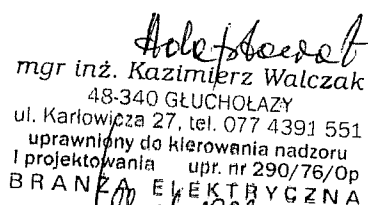 Adaptował
mgr inż. Kazimierz Walczak
48-340 GŁUCHOŁAZY
ul. Karłowicza 27, tel. 077 4391 551
uprawniony do kierowania nadzoru
i projektowania upr. nr 290/76/Op
BRANŻA ELEKTRYCZNA